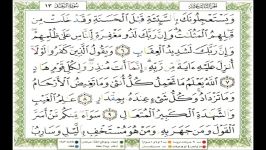 سُورَةُ الرَّعْدِ ١٣
وَيَسْتَعْجِلُونَكَ بِٱلسَّيِّئَةِ قَبْلَ ٱلْحَسَنَةِ وَقَدْ خَلَتْ مِن
قَبْلِهِمُ ٱلْمَثُلَٰتُ وَإِنَّ رَبَّكَ لَذُو مَغْفِرَةٍ لِّلنَّاسِ عَلَىٰ ظُلْمِهِمْ
وَإِنَّ رَبَّكَ لَشَدِيدُ ٱلْعِقَابِ ٦ وَيَقُولُ ٱلَّذِينَ كَفَرُوا۟ لَوْلَآ
أُنزِلَ عَلَيْهِ ءَايَةٌ مِّن رَّبِّهِۦٓ إِنَّمَآ أَنتَ مُنذِرٌ وَلِكُلِّ قَوْمٍ هَادٍ
٧ ٱللَّهُ يَعْلَمُ مَا تَحْمِلُ كُلُّ أُنثَىٰ وَمَا تَغِيضُ ٱلْأَرْحَامُ
وَمَا تَزْدَادُ وَكُلُّ شَىْءٍ عِندَهُۥ بِمِقْدَارٍ ٨ عَٰلِمُ ٱلْغَيْبِ
وَٱلشَّهَٰدَةِ ٱلْكَبِيرُ ٱلْمُتَعَالِ ٩ سَوَآءٌ مِّنكُم مَّنْ أَسَرَّ
ٱلْقَوْلَ وَمَن جَهَرَ بِهِۦ وَمَنْ هُوَ مُسْتَخْفٍۭ بِٱلَّيْلِ وَسَارِبٌۢ